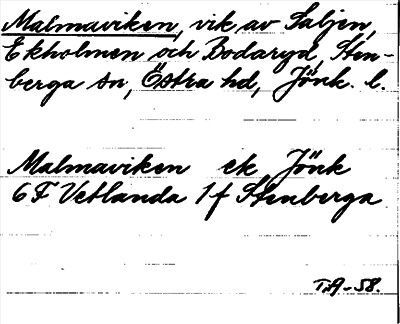 Malmaviken, vik av Saljen,
Ekholmen och Bodaryd, Sten-
berga sn, Östra hd, Jönk. l.
Malmaviken ek Jönk
6F Vetlanda 1f Stenberga
T.A-58.